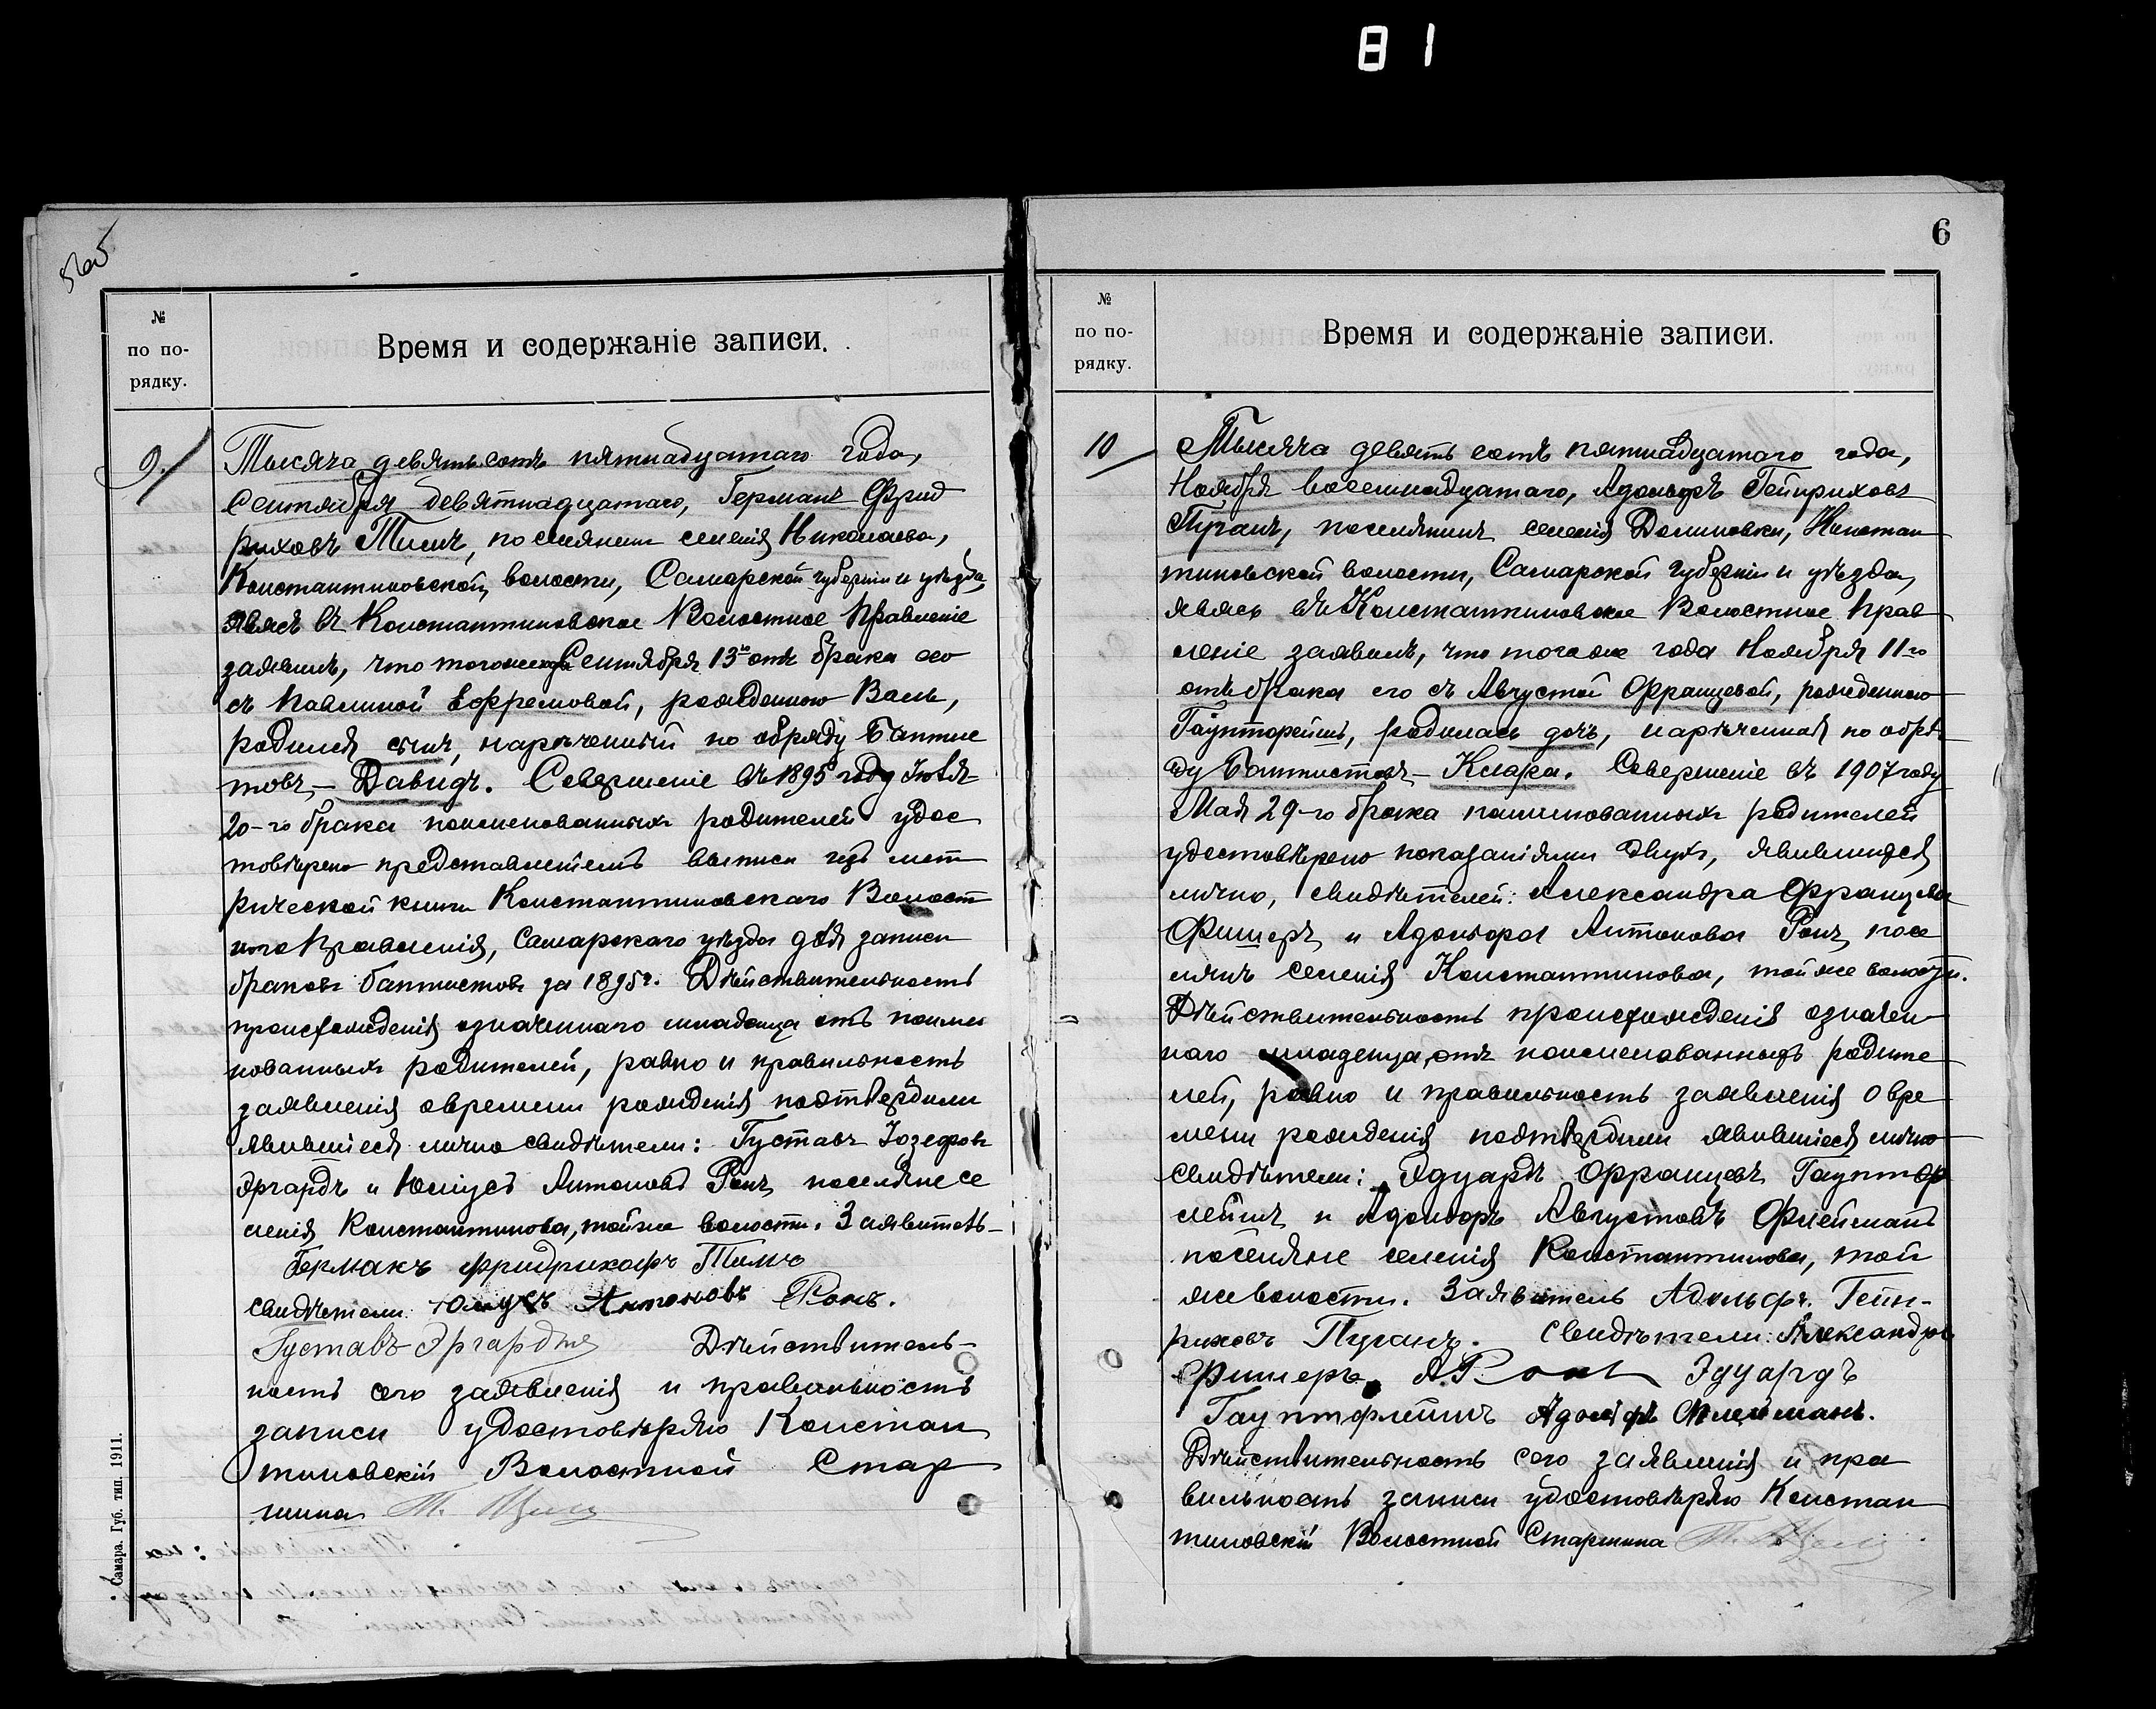 81
6
№
по по-
рядку.
Время и содержаніе записи.
9.
Тысяча девятьсотъ пятнадцатаго года,
Сентября девятнадцатаго, Германъ Фрид
риховъ Тимъ, поселянинъ селенія Николаева,
Константиновской волости, Самарской губерніи и уѣзда,
явясь въ Константиновское Волостное Правленіе
заявилъ, что того же года Сентября 13го отъ брака его
съ Павлиной Ефремовой, рожденною Валь,
родился сынъ, нареченный по обряду Баптис
товъ, — Давидъ. Совершеніе въ 1895 году
20-го брака поименованныхъ родителей удос
товѣрено представленіемъ выписи изъ мет
рической книги Константиновскаго Волост
ного Правленія, Самарскаго уѣзда для записи
браковъ баптистовъ за 1895 г. Дѣйствительность
происхожденія означеннаго младенца отъ поиме
нованныхъ родителей, равно и правильность
заявленія о времени рожденія подтвердили
явившіеся лично свидѣтели: Густавъ Іозефовъ
Эргардъ и Юліусъ Антоновъ Ронъ, поселяне се
ленія Константинова, той же волости. Заявитель —
Германъ Фридрихофъ Тимъ
свидѣтели Юлиусъ Антоновъ Ронъ.
Густавъ Эргардтъ Дѣйствитель-
ность сего заявленія и правильность
записи удостовѣряю Констан
тиновскій Волостной Стар
шина
Самара. Губ. тип. 1911.
№
по по-
рядку.
Время и содержаніе записи.
10
Тысяча девять сотъ пятнадцатаго года,
Ноября восемнадцатаго, Адольфъ Гейнриховъ
Пуганъ, поселянинъ селенія Долиновки, Констан
тиновской волости, Самарской губерніи и уѣзда,
явясь въ Константиновское Волостное Прав
леніе заявилъ, что того же года Ноября 11-го
отъ брака его съ Августой Францевой, рожденною
родилась дочь, нареченная по обря
ду Баптистовъ — Клара. Совершеніе въ 1907 году
Мая 29-го брака поименованныхъ родителей
удостовѣрено показаніями двухъ, явившихся
лично, свидѣтелей: Александра Францева
Фишеръ и Адольфа Антонова Ронъ, посе
лянъ селенія Константинова, той же волости.
Дѣйствительность происхожденія означен
наго младенца, отъ поименованныхъ родите
лей, равно и правильность заявленія о вре
мени рожденія подтвердили явившіеся лично
свидѣтели: Эдуардъ Францевъ Гауптф
лейшъ и Адольфъ Августовъ Флейманъ
поселяне селенія Константинова, той
же волости. Заявитель Адольфъ. Гейн-
риховъ Пуганъ. Свидѣтели: Александръ
Фишеръ, А. Ронъ Эдуардъ
Гауптфлейшъ Адольфъ Флейманъ.
Дѣйствительность сего заявленія и пра
вильность записи удостовѣряю Констан
тиновскій Волостной Старшина